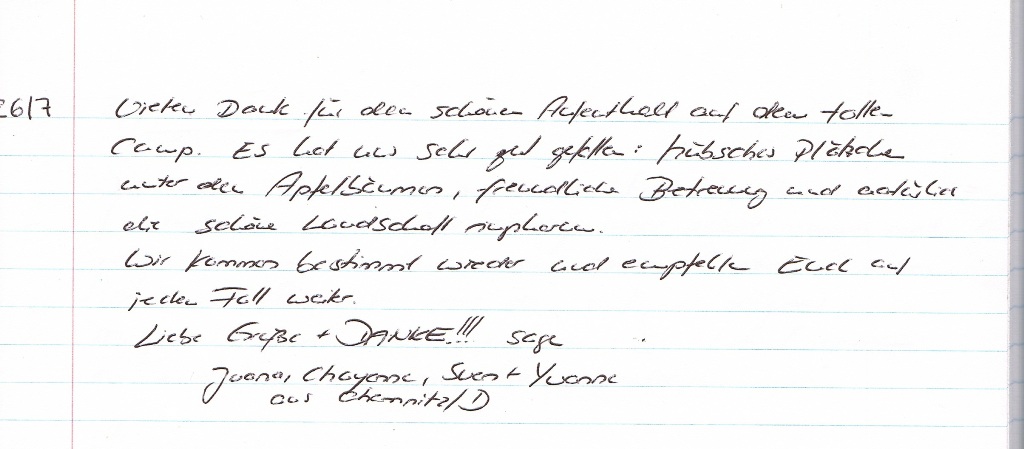 26/7 Vielen Dank für den schönen Aufenthalt auf dem tollen
Camp. Es hat uns sehr gut gefallen: hübsches Plätzchen
unter den Apfelbäumen, freundliche Betreuung und natürlich
die schöne Landschaft ringsherum.
Wir kommen bestimmt wieder und empfehlen Euch auf
jeden Fall weiter.
Liebe Grüße + DANKE!!! sagen
Joana, Chayenne, Sven + Yvonne
aus Chemnitz/D